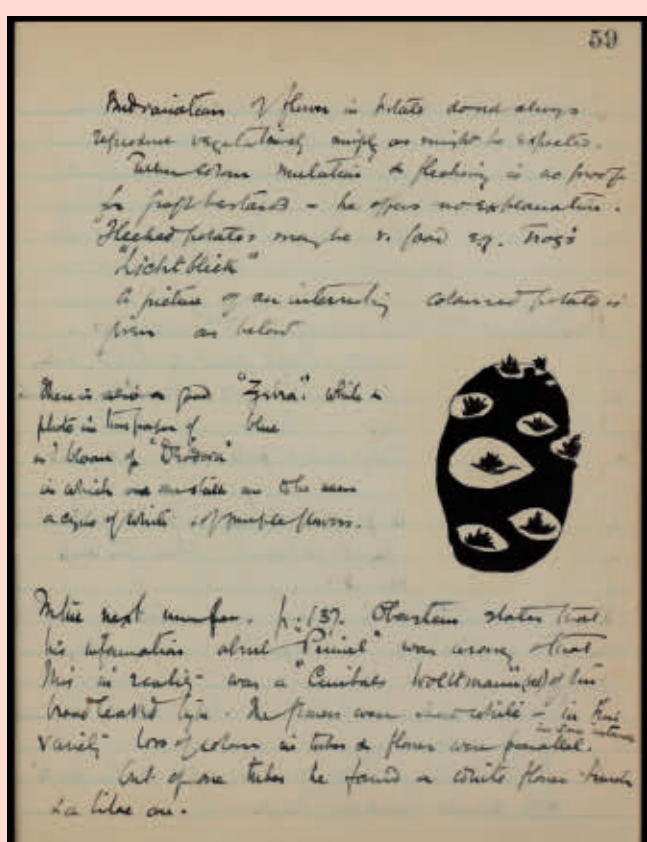 59
Budvariation of flower in potato does not always
reproduce vegetatively simply as might be expected.
Tuber colour mutation & flecking is no proof
for graft bastards – he offers no explanation.
Flecked potatoes may be v. good eg.
"Lichtblick"
A picture of an interesting coloured potato is
given as below
There is also a good "Zebra" while a
photo in this paper of blue
bloom of
in which one on the same
of white & of purple flowers.
In the next number. p. 137. Oberstein states that
his information about was wrong & that
this in reality was a "Cimbals Wohltmann" (red) of the
broad leaved type. The flowers were white – in this
variety loss of colour in tuber & flower were parallel.
Out of one tuber he found a white flower branch
& a lilac one.